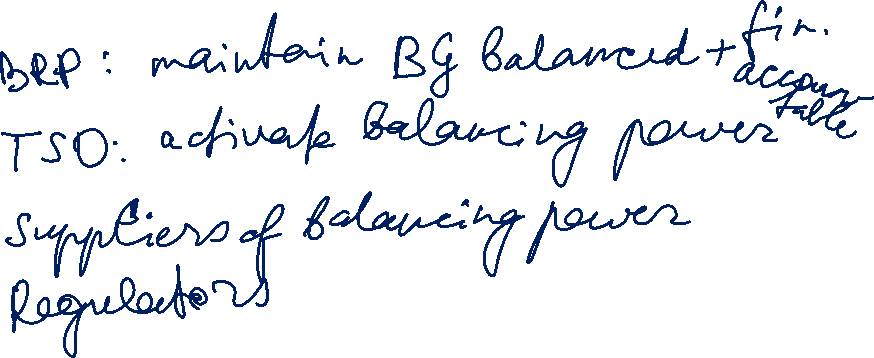 BRP: maintain BG balanced + fin. accountable
TSO: activate balancing power
Suppliers of balancing power
Regulators